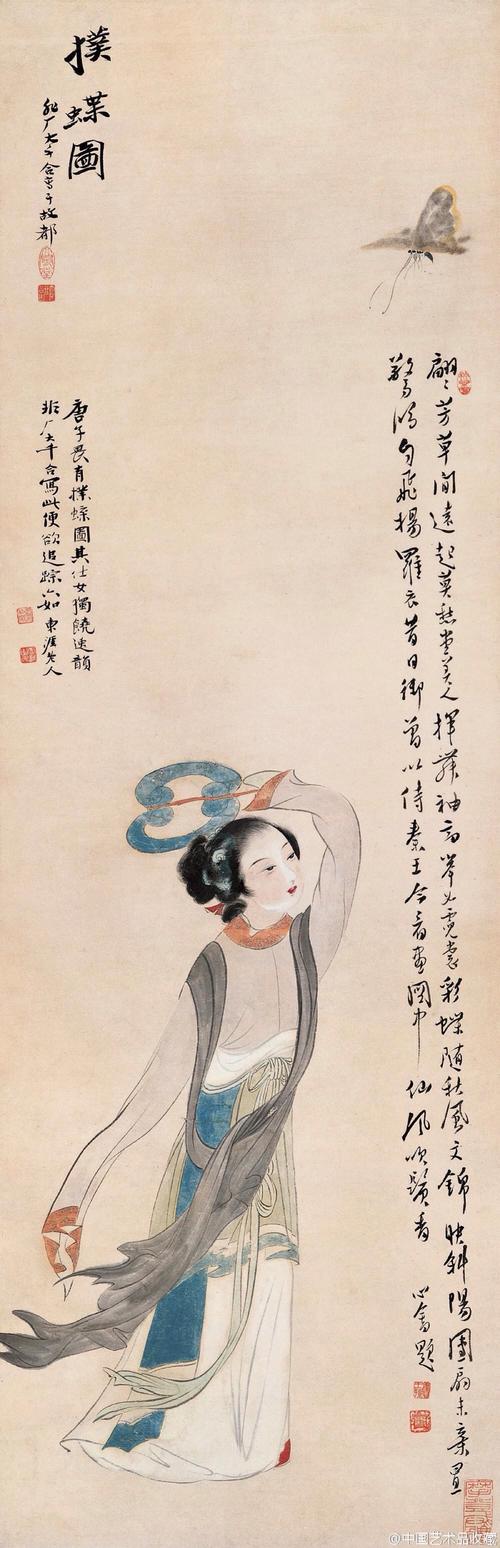 撲蝶圖
非厂大千合寫于故都
唐子畏有撲蝶圖其仕女獨饒逸韻
非厂大千合寫此便欲追踪六如 東涯老人
翩〻芳草間遠起莫愁堂美人揮舞袖高舉如霓裳彩蝶隨秋風文錦映斜陽團扇未棄置
驚鴻自飛揚羅衣昔日御曾以侍秦王今看畫圖中仙風吹鬢香
心畬題
@中国艺术品收藏